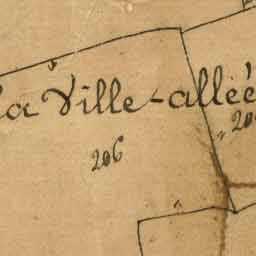 La Ville-alléé
206